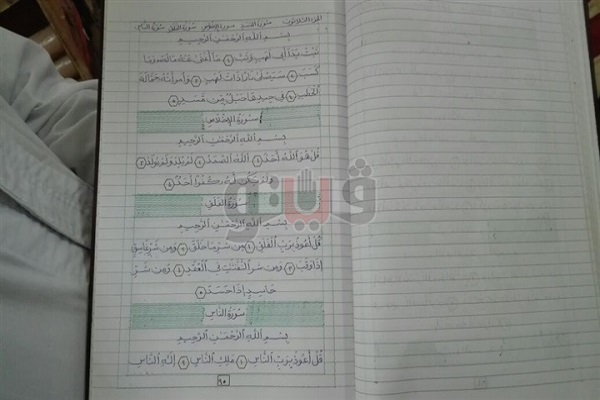 الجزء الثلاثون سورة المسد سورة الإخلاص سورة الفلق سورة الناس
بِسْمِ اللَّهِ الرَّحْمَٰنِ الرَّحِيمِ
تَبَّتْ يَدَا أَبِي لَهَبٍ وَتَبَّ ١ مَا أَغْنَىٰ عَنْهُ مَالُهُ وَمَا
كَسَبَ ٢ سَيَصْلَىٰ نَارًا ذَاتَ لَهَبٍ ٣ وَامْرَأَتُهُ حَمَّالَةَ
الْحَطَبِ ٤ فِي جِيدِهَا حَبْلٌ مِّن مَّسَدٍ ٥
سُورَةُ الإِخْلَاصِ
بِسْمِ اللَّهِ الرَّحْمَٰنِ الرَّحِيمِ
قُلْ هُوَ اللَّهُ أَحَدٌ ١ اللَّهُ الصَّمَدُ ٢ لَمْ يَلِدْ وَلَمْ يُولَدْ ٣
وَلَمْ يَكُن لَّهُ كُفُوًا أَحَدٌ ٤
فيتو
سُورَةُ الْفَلَقِ
بِسْمِ اللَّهِ الرَّحْمَٰنِ الرَّحِيمِ
قُلْ أَعُوذُ بِرَبِّ الْفَلَقِ ١ مِن شَرِّ مَا خَلَقَ ٢ وَمِن شَرِّ غَاسِقٍ
إِذَا وَقَبَ ٣ وَمِن شَرِّ النَّفَّٰثَٰتِ فِي الْعُقَدِ ٤ وَمِن شَرِّ
حَاسِدٍ إِذَا حَسَدَ ٥
سُورَةُ النَّاسِ
بِسْمِ اللَّهِ الرَّحْمَٰنِ الرَّحِيمِ
قُلْ أَعُوذُ بِرَبِّ النَّاسِ ١ مَلِكِ النَّاسِ ٢ إِلَٰهِ النَّاسِ